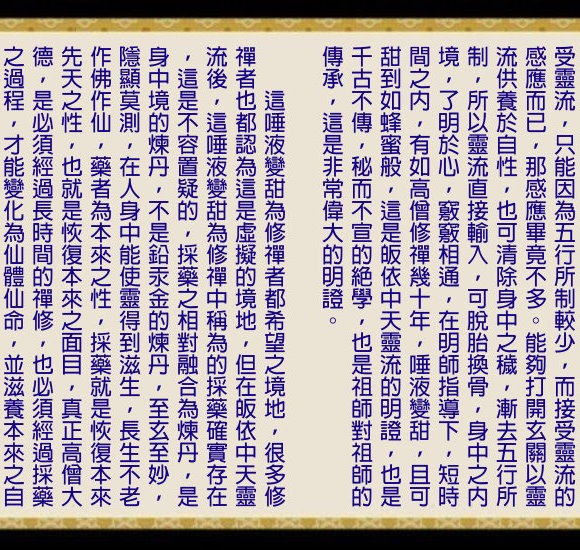 受靈流，只能因為五行所制較少，而接受靈流的
感應而已，那感應畢竟不多。能夠打開玄關以靈
流供養於自性，也可清除身中之穢，漸去五行所
制，所以靈流直接輸入，可脫胎換骨，身中之內
境，了明於心　竅竅相通，在明師指導下，短時
間之內，有如高僧修禪幾十年，唾液變甜，且可
甜到如蜂蜜般，這是皈依中天靈流的明證，也是
千古不傳，秘而不宣的絕學，也是祖師對祖師的
傳承，這是非常偉大的明證。
這唾液變甜為修禪者都希望之境地，很多修
禪者也都認為這是虛擬的境地，但在皈依中天靈
流後，這唾液變甜為修禪中稱為的採藥確實存在
，這是不容置疑的，採藥之相對融合為煉丹，是
身中境的煉丹，不是鉛汞金的煉丹，至玄至妙，
隱顯莫測，在人身中能使靈得到滋生，長生不老
作佛作仙，藥者為本來之性，採藥就是恢復本來
先天之性，也就是恢復本來之面目，真正高僧大
德，是必須經過長時間的禪修，也必須經過採藥
之過程，才能變化為仙體仙命，並滋養本來之自